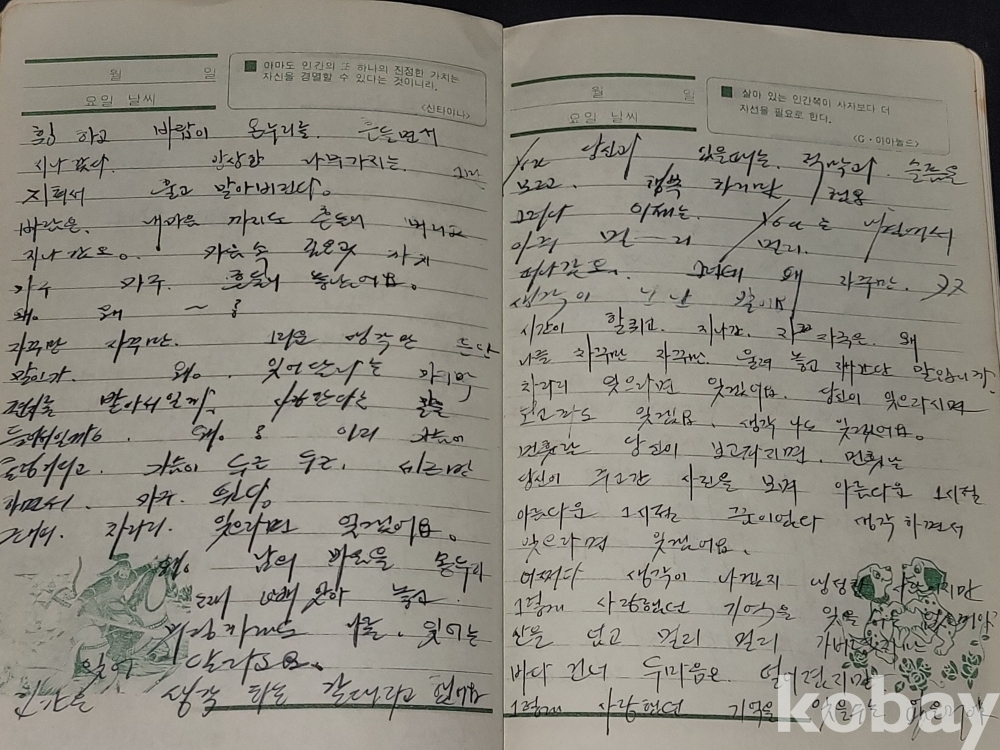 월 일
요일 날씨
■ 아마도 인간의 또 하나의 진정한 가치는
자신을 경멸할 수 있다는 것이니라.
<산타이나>
휭 하고 바람이 온누리를 흔들면서
지나 갔다. 앙상한 나무가지는
지쳐서 울고 말아버린다.
바람은 내마음 까지도 흔들어
지나 갔오. 가슴속 깊은곳 까지
마구 마구 흔들어 놓았어요.
왜. 왜 ~ ?
자꾸만 자꾸만. 그리운 생각만 든단
말인가. 왜. 잊어단나는 마지막
전화를 받아서일까. 사랑한다는
들어서일까요. 왜. ? 이리 가슴이
가슴이 두근 두근.
하면서. 마구. 뛴다.
차라리. 잊으라면 잊겠어요.
왜. 남의 마음을 몽두리
빼 앗아 놓고
나를. 잊어는
잊어 달라고요.
인간은 생각 하는 갈대라고 했어요
월 일
요일 날씨
■ 살아 있는 인간쪽이 사자보다 더
자선을 필요로 한다.
<G·이아놀드>
You 당신과 있을때는. 적막과. 슬픔을
모르고. 행복 하지만
그러나 이제는. You는 내곁에서
아주 먼 ― 리 멀리.
떠나갔오. 그런데 왜 자꾸만.
생각이 난단 말이냐
시간이 할퀴고. 지나간. 자국은. 왜
나를 자꾸만 자꾸만. 울려 놓고 말입니까?
차라리 잊으라면 잊겠어요. 당신이 잊으라시면
보고파도 잊겠어요. 생각 나도 잊겠어요.
먼훗날 당신이 보고파지면. 먼훗날
당신이 주고간 사진을 보며 아름다운 그시절
아름다운 그시절 끝이없다 생각 하면서
잊으라면 잊겠어요.
어쩌다 생각이 나겠지 냉정한 사람이지만
그렇게 사랑했던 기억을 잊을 수는 없을거야
산을 넘고 멀리 멀리 가버렸지만
바다 건너 두마음은 떨어졌지만
그렇게 사랑했던 기억을 잊을수는 없을거야
kobay